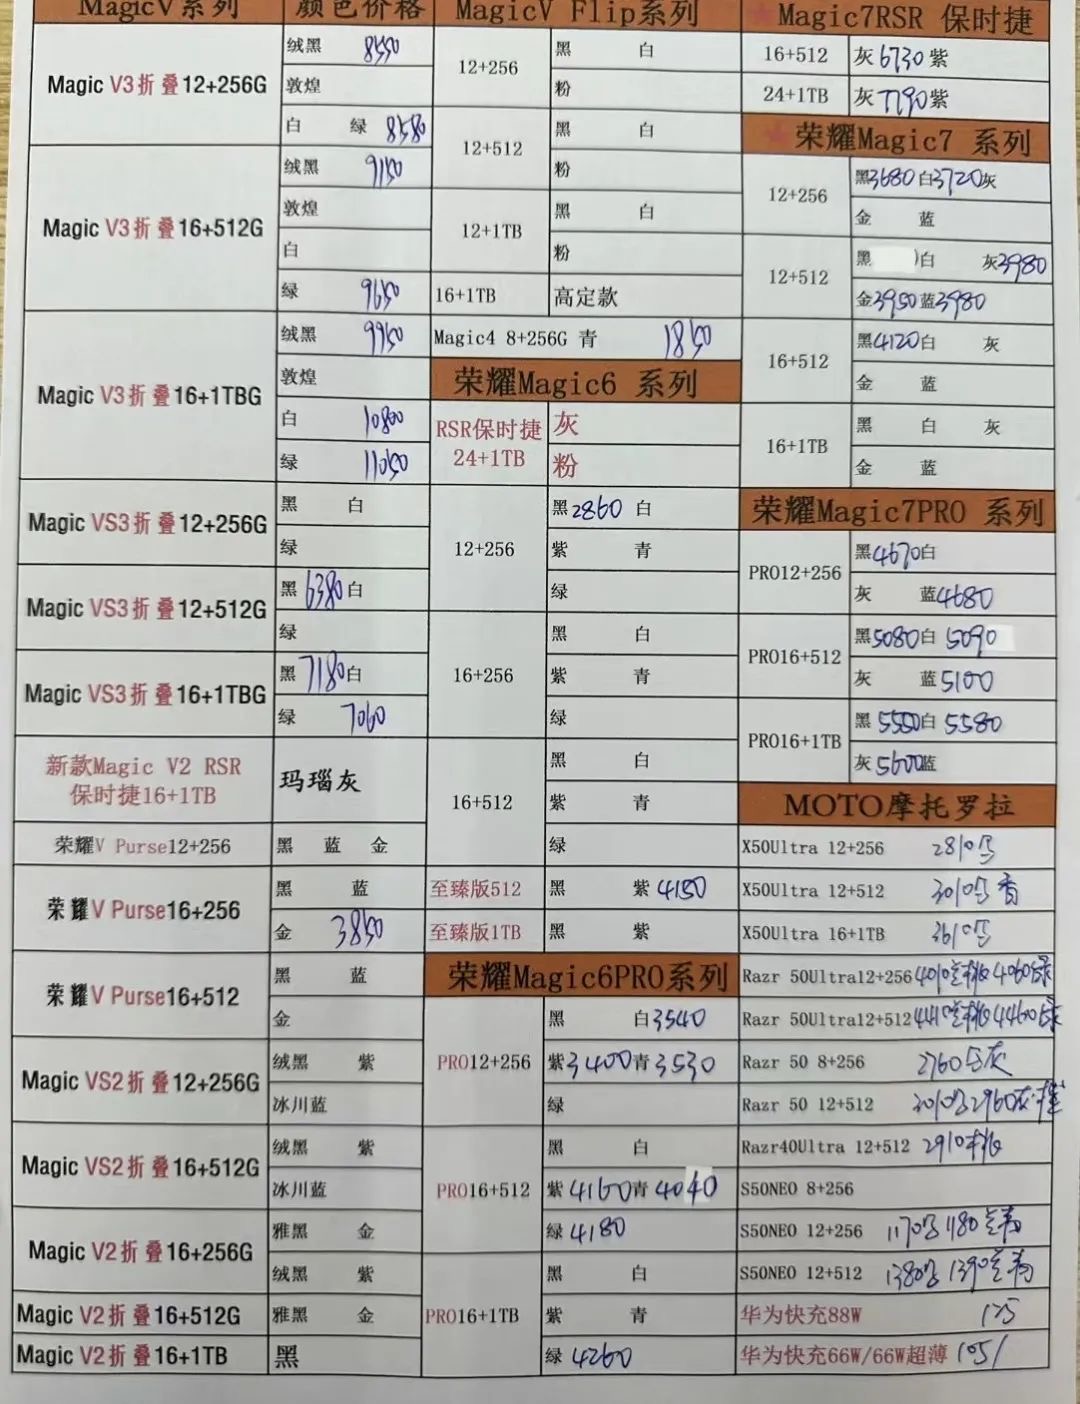 MagicV系列 颜色价格
Magic V3折叠12+256G
绒黑 8550
敦煌
白 绿 8580
Magic V3折叠16+512G
绒黑 9150
敦煌
白
绿 9650
Magic V3折叠16+1TBG
绒黑 9950
敦煌
白 10800
绿 11050
Magic VS3折叠12+256G
黑 白
绿
Magic VS3折叠12+512G
黑 6380 白
绿
Magic VS3折叠16+1TBG
黑 7180 白
绿 7060
新款Magic V2 RSR
保时捷16+1TB
玛瑙灰
荣耀V Purse12+256
黑 蓝 金
荣耀V Purse16+256
黑 蓝
金 3850
荣耀V Purse16+512
黑 蓝
金
Magic VS2折叠12+256G
绒黑 紫
冰川蓝
Magic VS2折叠16+512G
绒黑 紫
冰川蓝
Magic V2折叠16+256G
雅黑 金
绒黑 紫
Magic V2折叠16+512G
雅黑 金
Magic V2折叠16+1TB
黑
MagicV Flip系列
12+256
黑 白
粉
12+512
黑 白
粉
12+1TB
黑 白
粉
16+1TB 高定款
Magic4 8+256G 青 1850
荣耀Magic6 系列
RSR保时捷
24+1TB
灰
粉
12+256
黑 2860 白
紫 青
绿
16+256
黑 白
紫 青
绿
16+512
黑 白
紫 青
绿
至臻版512 黑 紫 4150
至臻版1TB 黑 紫
荣耀Magic6PRO系列
PRO12+256
黑 白 3540
紫 3400 青 3530
绿
PRO16+512
黑 白
紫 4160 青 4040
绿 4180
PRO16+1TB
黑 白
紫 青
绿 4260
★Magic7RSR 保时捷
16+512 灰 6730 紫
24+1TB 灰 7790 紫
★荣耀Magic7 系列
12+256
黑 3680 白 3720 灰
金 蓝
12+512
黑 白 灰 3980
金 3950 蓝 3980
16+512
黑 4120 白 灰
金 蓝
16+1TB
黑 白 灰
金 蓝
荣耀Magic7PRO 系列
PRO12+256
黑 4670 白
灰 蓝 4680
PRO16+512
黑 5080 白 5090
灰 蓝 5100
PRO16+1TB
黑 5550 白 5580
灰 5600 蓝
MOTO摩托罗拉
X50Ultra 12+256 2810
X50Ultra 12+512 3010
X50Ultra 16+1TB 3610
Razr 50Ultra12+256 4010 桃 4060 绿
Razr 50Ultra12+512 4410 桃 4460 绿
Razr 50 8+256 2760 灰
Razr 50 12+512 3010 2960 灰
Razr40Ultra 12+512 2910 桃
S50NEO 8+256
S50NEO 12+256 1170 1180
S50NEO 12+512 1380 1390
华为快充88W 125
华为快充66W/66W超薄 105/